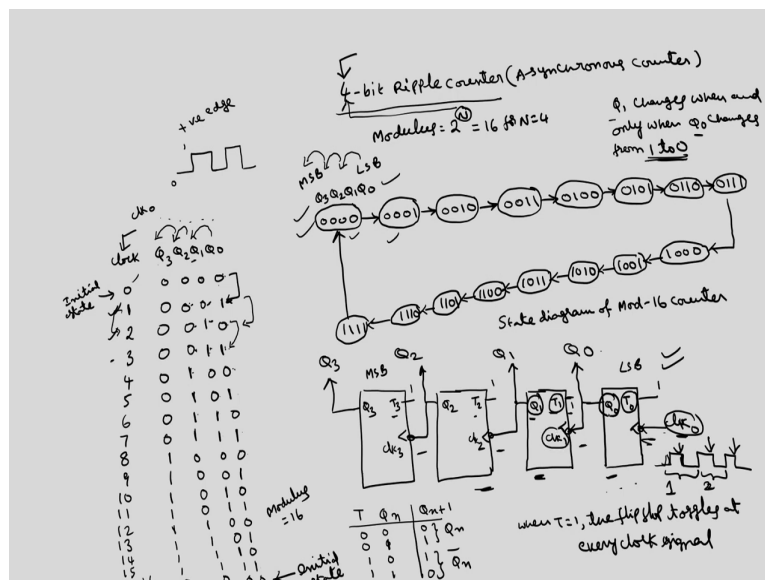 4-bit Ripple Counter (Asynchronous Counter)
Modulus = 2^N = 16 for N=4
Q1 changes when and
only when Q0 changes
from 1 to 0
+ve edge
1
0
MSB LSB
Q3 Q2 Q1 Q0
0000 0001 0010 0011 0100 0101 0110 0111
1111 1110 1101 1100 1011 1010 1001 1000
State diagram of Mod-16 counter
clk0
clock Q3 Q2 Q1 Q0
Initial state
0 0 0 0 0
1 0 0 0 1
2 0 0 1 0
3 0 0 1 1
4 0 1 0 0
5 0 1 0 1
6 0 1 1 0
7 0 1 1 1
8 1 0 0 0
9 1 0 0 1
10 1 0 1 0
11 1 0 1 1
12 1 1 0 0
13 1 1 0 1
14 1 1 1 0
15
Modulus
=16
initial
state
Q3 MSB Q2 Q1 Q0 LSB
Q3 T3 1 Q2 T2 1 Q1 T1 1 Q0 T0 1
clk3 clk2 clk1 clk0
1 2
T Qn Qn+1
0 0 0 } Qn
0 1 1
1 0 1 } Q̅n
1 1 0
when T=1, the flipflop toggles at
every clock signal